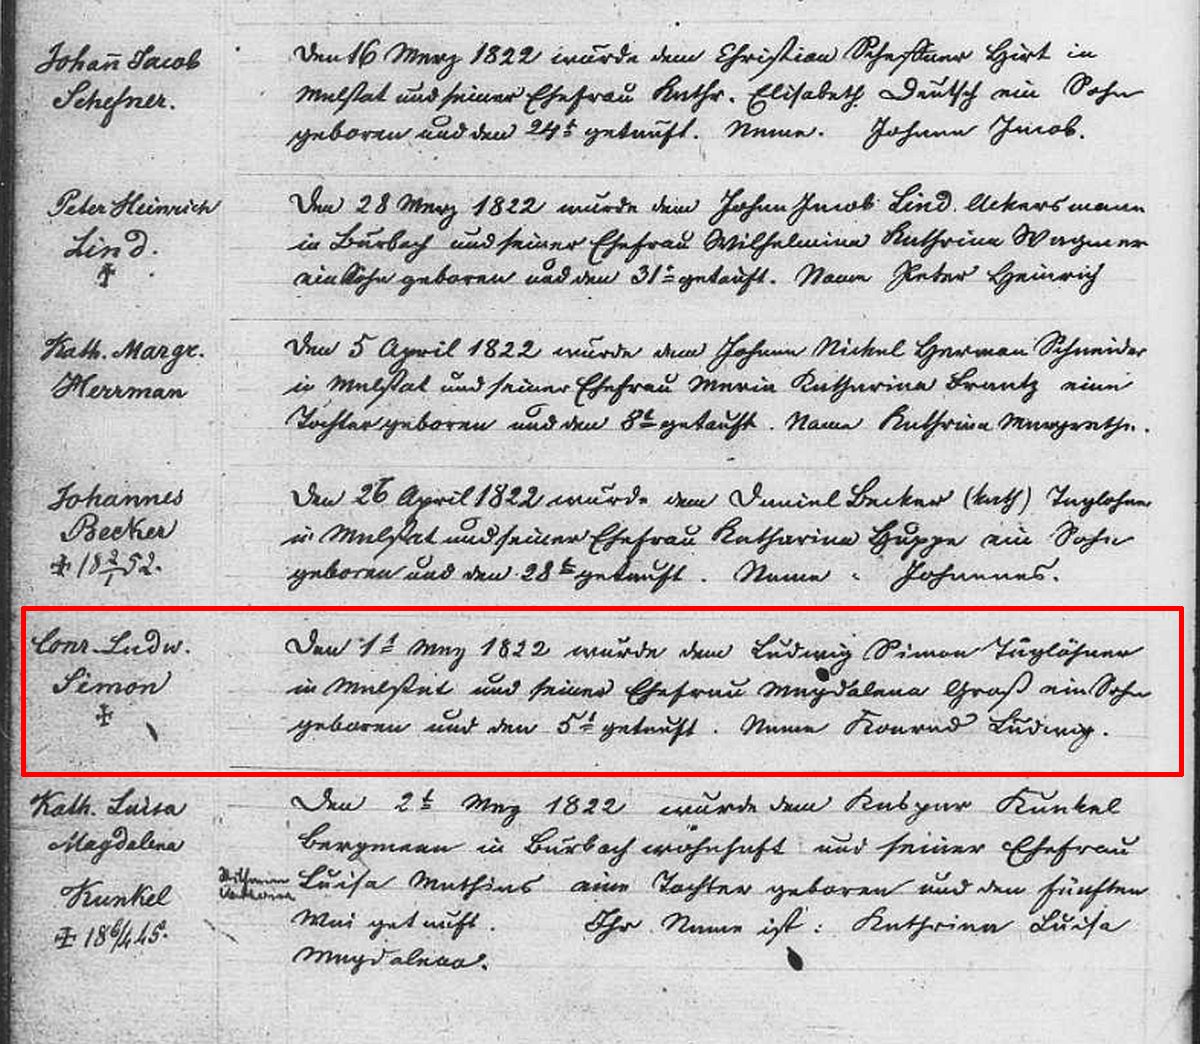 Johan̅ Jacob
Schefner.
Den 16 Merz 1822 wurde dem Christian Scheffner Hirt in
Malstat und seiner Ehefrau Kathr. Elisabeth Deutsch ein Sohn
geboren und den 24t getauft. Name. Johann Jacob.
Peter Heinrich
Lind.
Den 28 Merz 1822 wurde dem Johan Jacob Lind Ackersmann
in Burbach und seiner Ehefrau Wilhelmina Kathrina Wagner
ein Sohn geboren und den 31t getauft. Name Peter Heinrich
Kath. Margr.
Herrman
Den 5 April 1822 wurde dem Johann Nickel Herman Schneider
in Malstat und seiner Ehefrau Maria Katharina Frantz eine
Tochter geboren und den 8t getauft. Name Kathrina Margretha.
Johannes
Becker
✠ 18 2/1 52.
Den 26 April 1822 wurde dem Daniel Becker (kath) Taglöhner
in Malstat und seiner Ehefrau Katharina Huppe ein Sohn
geboren und den 28t getauft. Name. Johannes.
Conr. Ludw.
Simon
✠
Den 1t May 1822 wurde dem Ludwig Simon Taglöhner
in Malstat und seiner Ehefrau Magdalena Groß ein Sohn
geboren und den 5t getauft. Name Konrad Ludwig.
Kath. Luisa
Magdalena
Kunkel
✠ 18 6/4 45.
Den 2t May 1822 wurde dem Kaspar Kunkel
Bergmann in Burbach wohnhaft und seiner Ehefrau
Luisa Mathias eine Tochter geboren und den fünften
Mai getauft. Ihr Name ist: Kathrina Luisa
Magdalena.